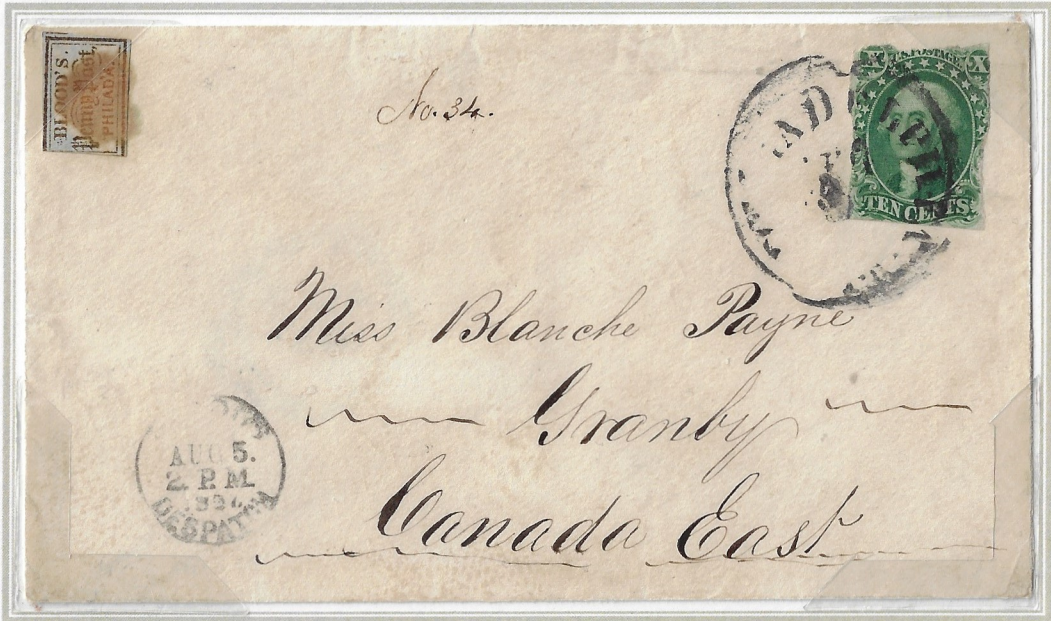 BLOOD'S.
Penny Post,
PHILADA.
No. 34.
U.S. POSTAGE
X X
TEN CENTS
ADELPHIA
Miss Blanche Payne
Granby
Canada East
AUG 5.
2. P.M.
DESPATCH